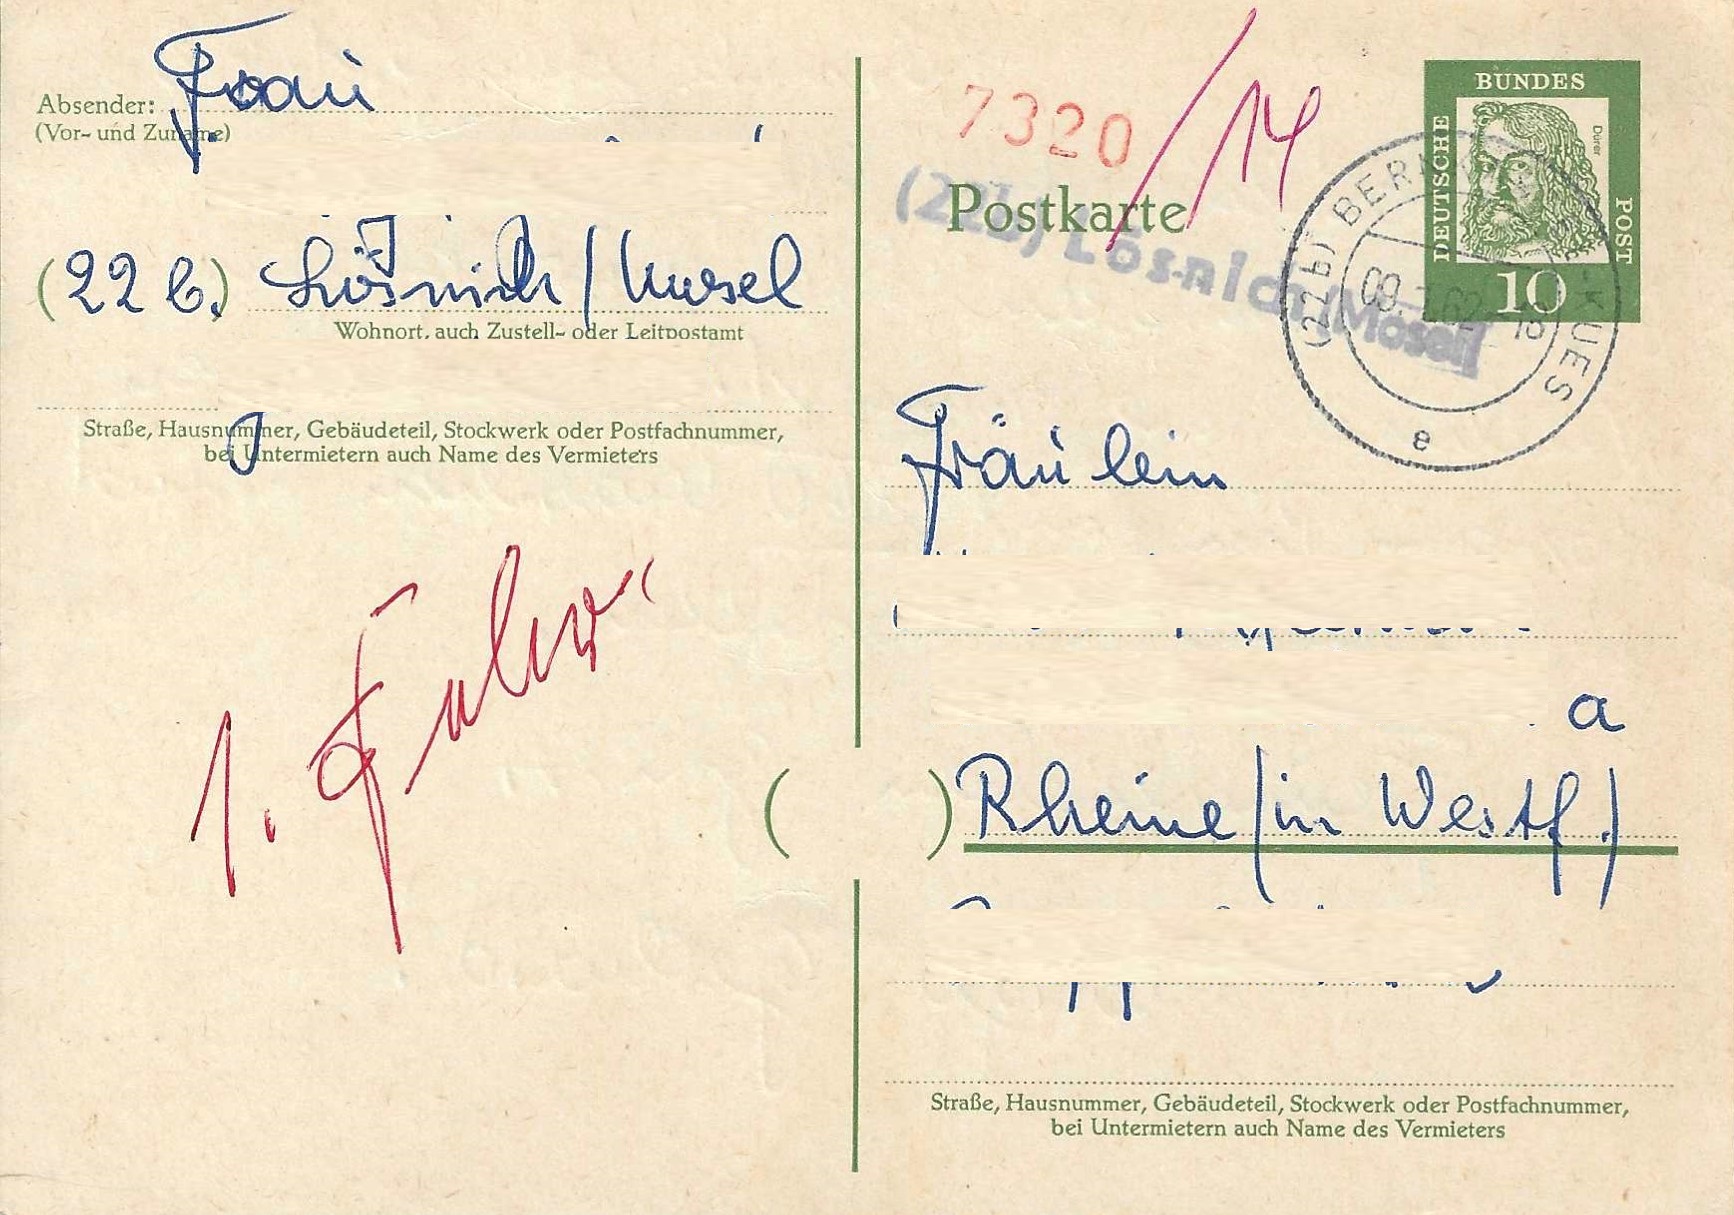 Absender: Frau
(Vor- und Zuname)
(22 b.) Lösnich / Mosel
Wohnort, auch Zustell- oder Leitpostamt
Straße, Hausnummer, Gebäudeteil, Stockwerk oder Postfachnummer,
bei Untermietern auch Name des Vermieters
1.
7320 / 14
Postkarte
(22b) Lösnich/Mosel
DEUTSCHE BUNDES POST
Dürer
10
(22b) BERNKASTEL-KUES
e
Fräulein
a
( ) Rheine (in Westf.)
Straße, Hausnummer, Gebäudeteil, Stockwerk oder Postfachnummer,
bei Untermietern auch Name des Vermieters